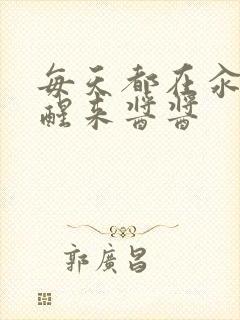 每天都在汆
醒来酱酱
郭廣昌